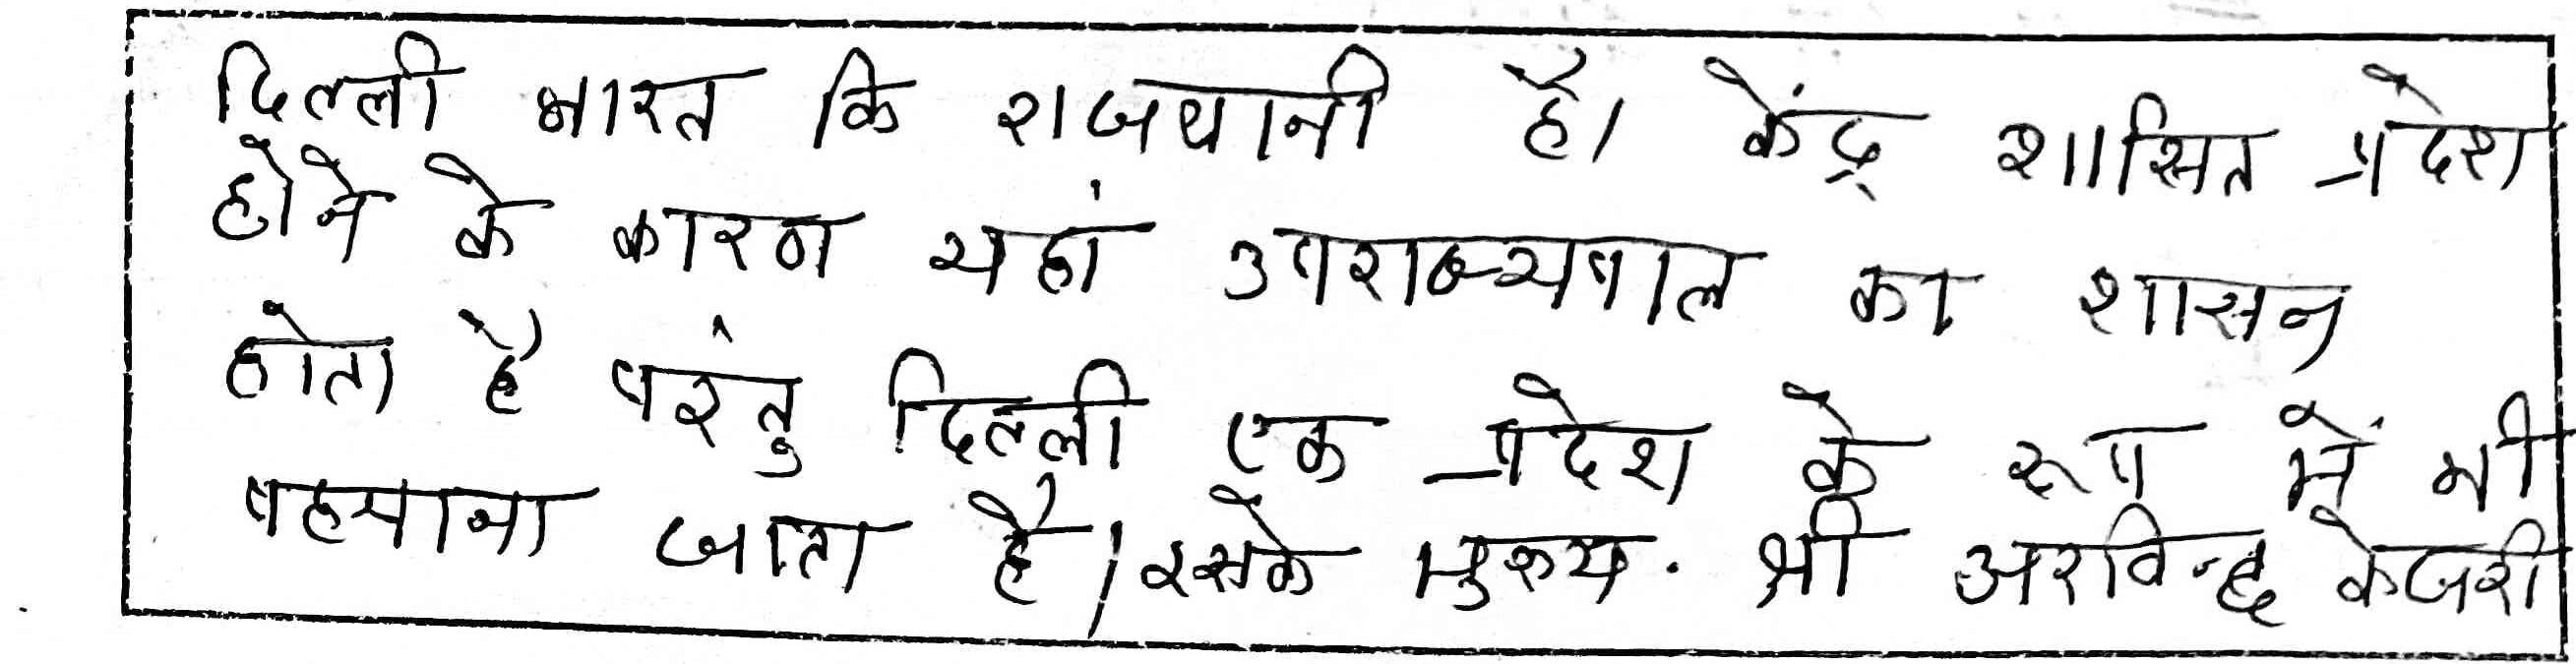 दिल्ली भारत कि राजधानी है। केंद्र शासित प्रदेश
होने के कारण यहां उपराज्यपाल का शासन
होता है परंतु दिल्ली एक प्रदेश के रूप में भी
पहचाना जाता है। इसके मुख्य. श्री अरविन्द केजरी